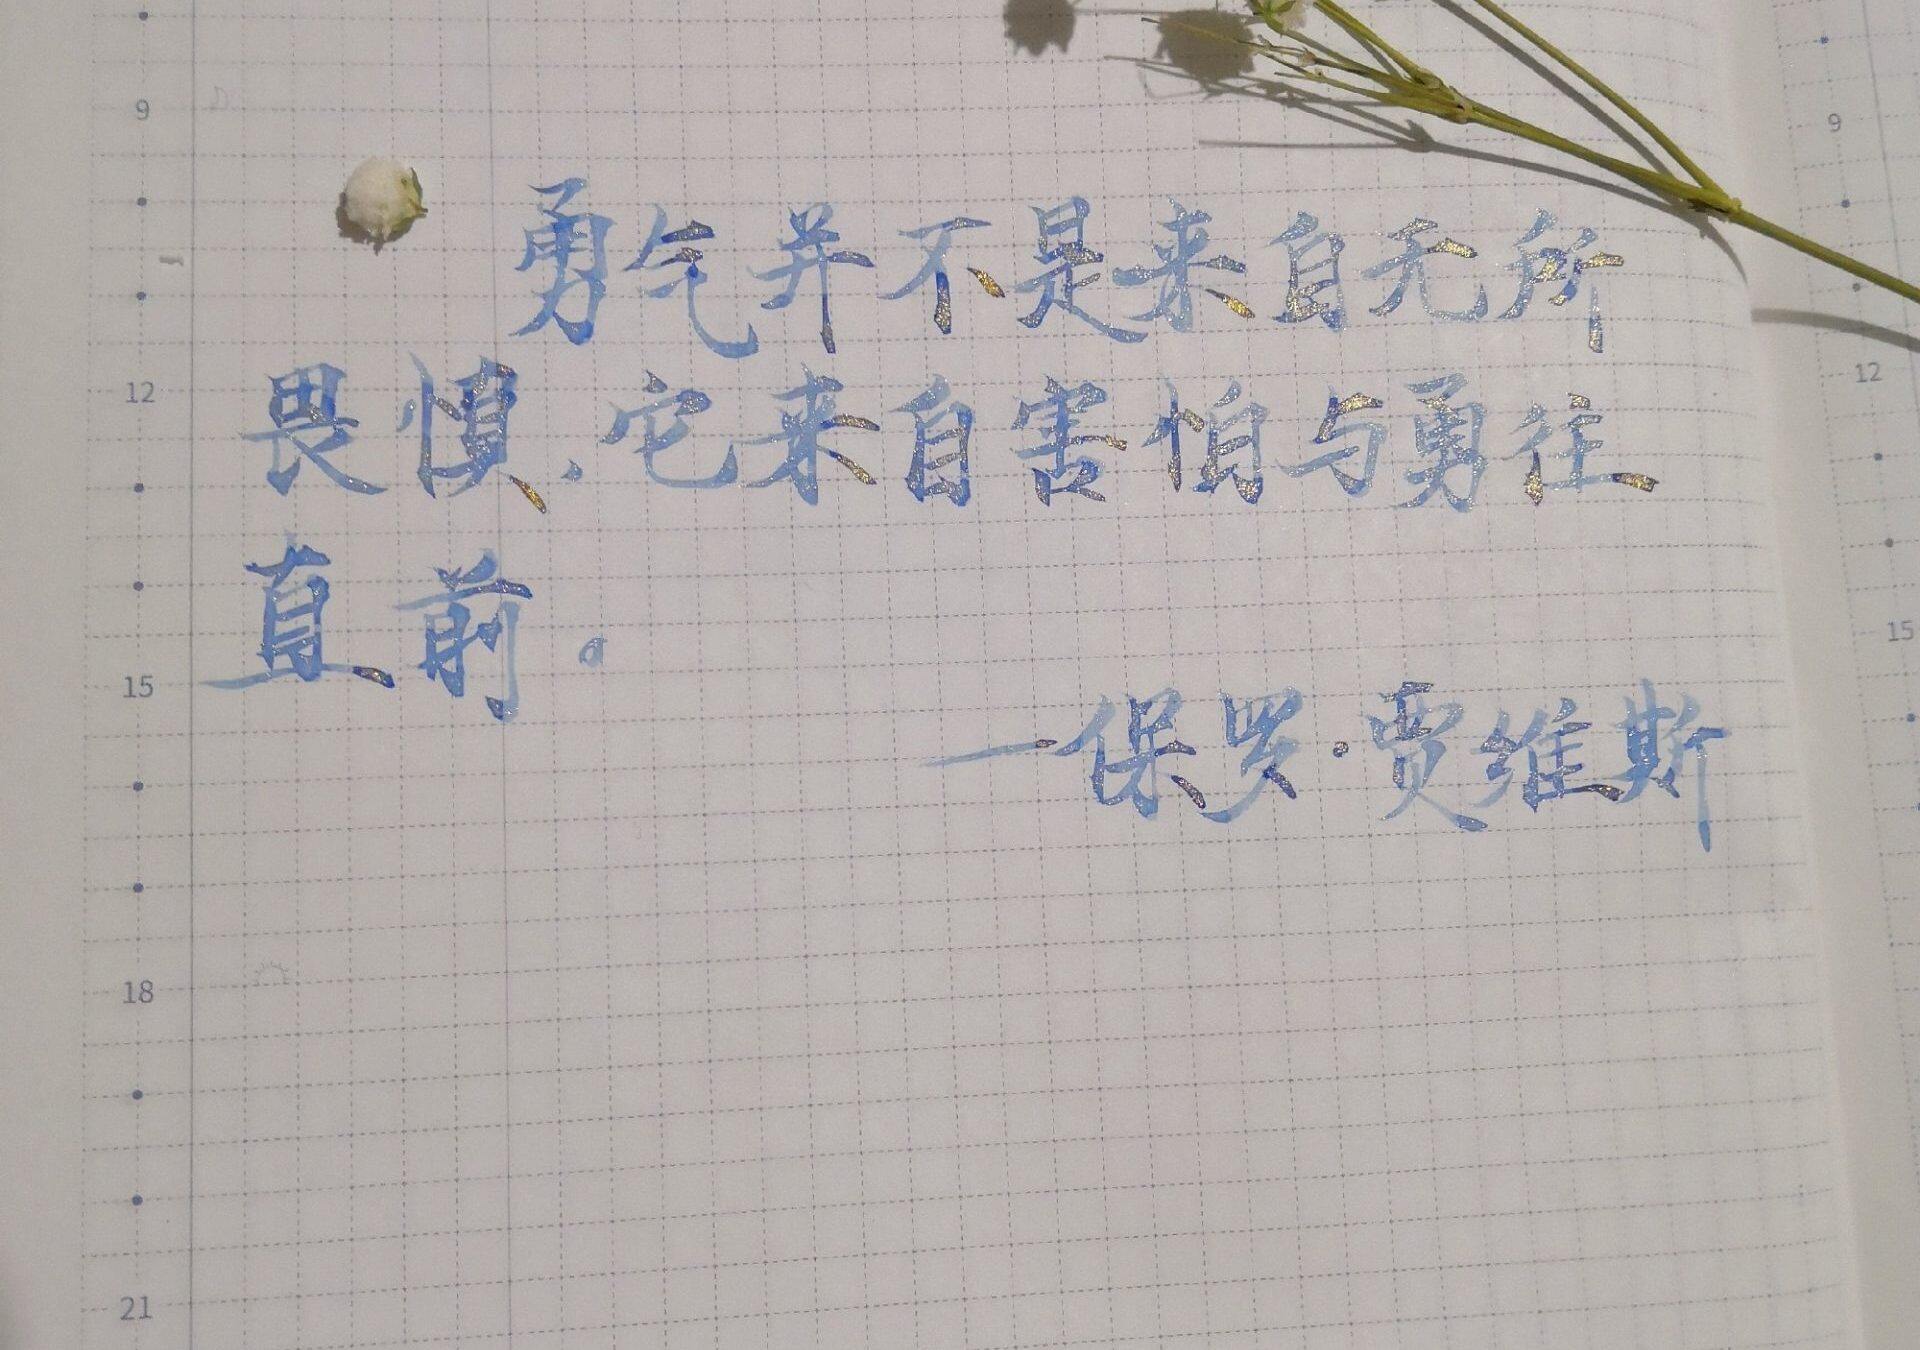 9
勇气并不是来自无所
畏惧，它来自害怕与勇往
12
直前。
15
—保罗·贾维斯
18
21
9
12
15